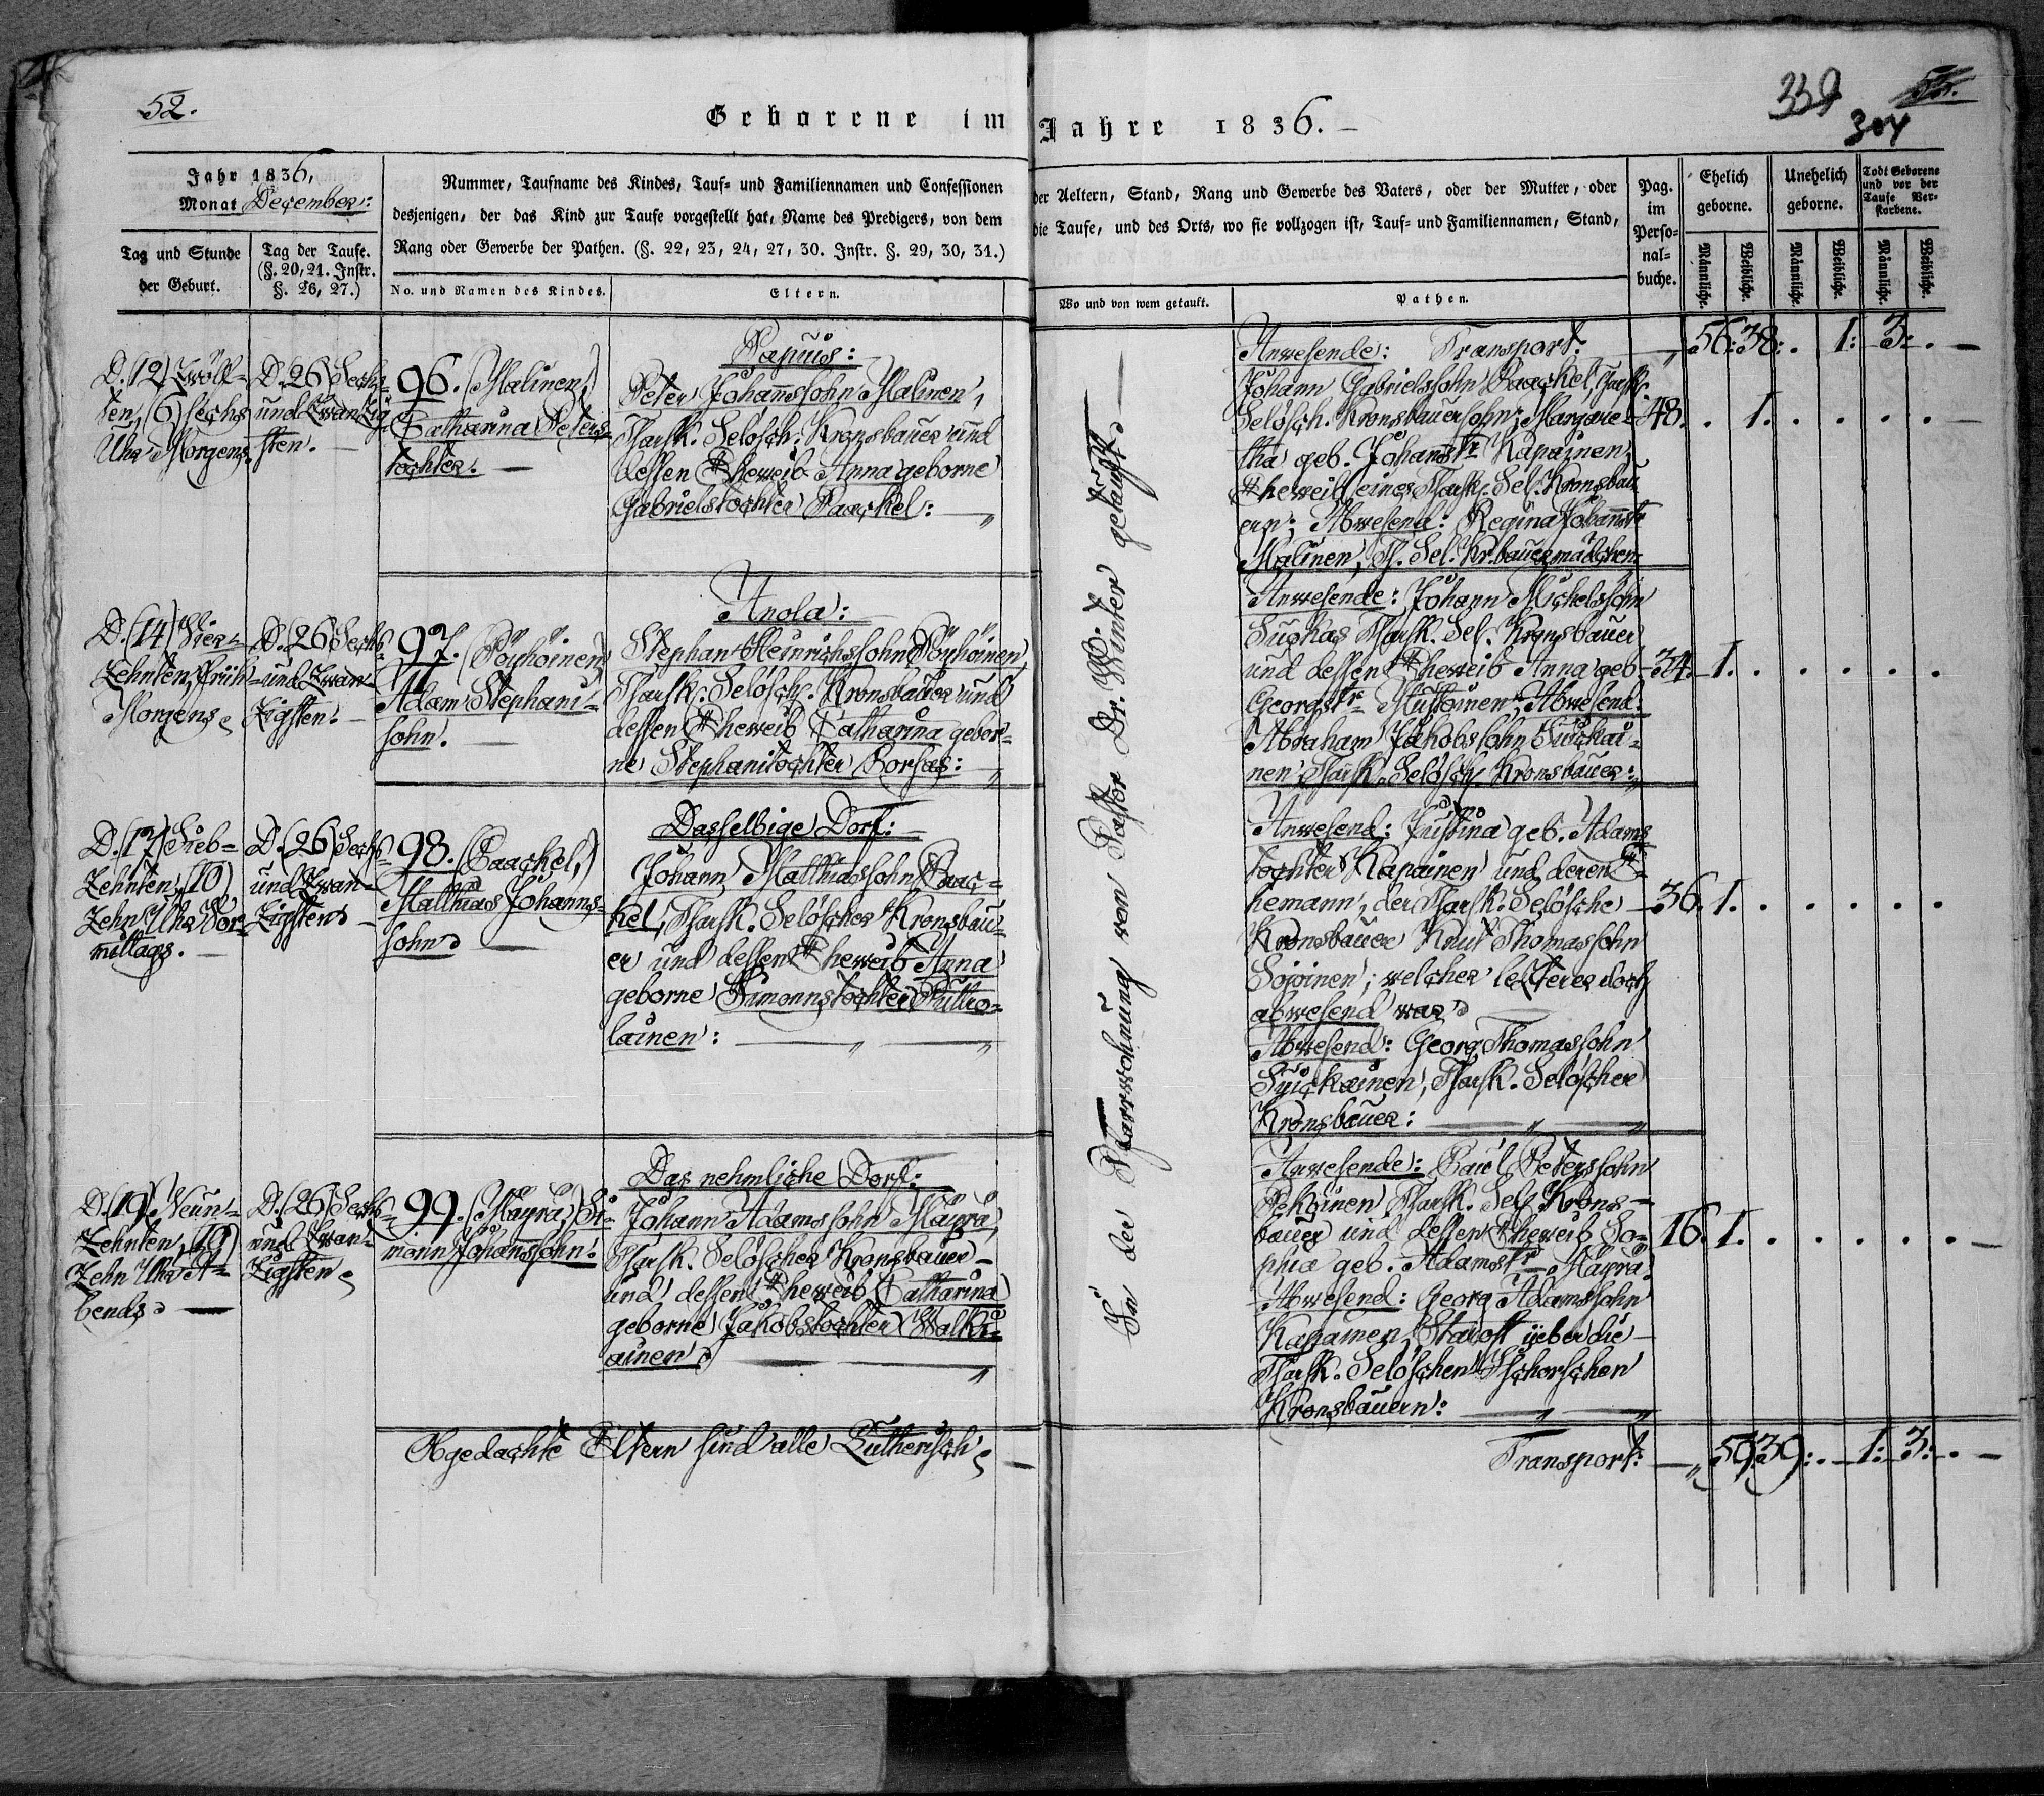 52.
Geborene im Jahre 1836.
339
304
Jahr 1836,
Monat December:
Tag und Stunde
der Geburt.
Tag der Taufe.
(§. 20, 21. Instr.
§. 26, 27.)
Nummer, Taufname des Kindes, Tauf- und Familiennamen und Confessionen
desjenigen, der das Kind zur Taufe vorgestellt hat, Name des Predigers, von dem
Rang oder Gewerbe der Pathen. (§. 22, 23, 24, 27, 30. Instr. §. 29, 30, 31.)
No. und Namen des Kindes.
Eltern.
der Aeltern, Stand, Rang und Gewerbe des Vaters, oder der Mutter, oder
die Taufe, und des Orts, wo sie vollzogen ist, Tauf- und Familiennamen, Stand,
Wo und von wem getauft.
Pathen.
Pag.
im
Perso-
nal-
buche.
Ehelich
geborne.
Unehelich
geborne.
Todt Geborene
und vor der
Taufe Ver-
storbene.
Männliche.
Weibliche.
Männliche.
Weibliche.
Männliche.
Weibliche.
D. (12) Zwölf-
ten, (6) sechs
Uhr Morgens.
D. 26 Sechs
und Zwanzig-
sten.
96. (Malinen,)
Catharina Peters-
tochter.
Papuis:
Peter Johannssohn Malinen,
Tharsk. Selösch. Kronsbauer und
dessen Eheweib Anna geborne
Gabrielstochter Paackel:
Anwesende: Transport: 56: 38: . 1: 3: .
Johann Gabrielssohn Paackel, Tharsk.
Selösch. Kronsbauersohn; Margare-
tha geb. Johannstr. Kapainen,
Eheweib eines Tharsk. Sel. Kronsbau
ern; Abwesend: Regina Johannstr
Malinen, Th. Sel. Kr. bauermädchen
48. . 1. . . . .
D. (14) Vier-
Zehnten, Früh-
Morgens.
D. (26) Sechs
und Zwan-
Zigsten.
97. (Pöyhöinen)
Adam Stephans-
sohn.
Anola:
Stephan Heinrichssohn Pöyhöinen,
Tharsk. Selösch. Kronsbauer und
dessen Eheweib Catharina gebor-
ne Stephanitochter Borsas:
Anwesende: Johann Michelssohn
Suckas Tharsk. Sel. Kronsbauer
und dessen Eheweib Anna geb.
Georgstr. Mustoinen; Abwesend:
Abraham Jakobssohn Suickai-
nen, Tharsk. Selösch. Kronsbauer:
34. 1. . . . . .
D. (17) Sieb-
Zehnten, (10)
Zehn Uhr Vor-
mittags.
D. (26) Sechs
und Zwan-
Zigsten
98. (Paackel,)
Matthias Johanns-
sohn
Dasselbige Dorf:
Johann Matthiassohn Paac-
kel, Tharsk. Selöscher Kronsbau-
er und dessen Eheweib Anna
geborne Simonnstochter Putro-
lainen:
Anwesend: Justina geb. Adams
tochter Kapainen und deren E-
hemann, der Tharsk. Selösche
Kronsbauer Knut Thomassohn
Sojoinen; welcher letzterer doch
abwesend war
Abwesend: Georg Thomassohn
Suickainen, Tharsk. Selöscher
Kronsbauer:
36. 1. . . . . .
D. (19) Neun-
Zehnten, (10)
Zehn Uhr A-
bends
D. (26) Sechs
und Zwan-
Zigsten
99. (Mäyrä,) Si-
monn Johannssohn.
Das nehmliche Dorf:
Johann Adamssohn Mäyrä,
Tharsk. Selöscher Kronsbauer
und dessen Eheweib Catharina
geborne Jakobstochter Walki-
ainen
Anwesende: Paul Peterssohn
Pekoinen Tharsk. Sel. Krons-
bauer und dessen Eheweib So-
phia geb. Adamstr. Mäyrä.
Abwesend: Georg Adamssohn
Kapainen, Starost ueber die
Tharsk. Selöschen Tschorschen
Kronsbauern:
16. 1. . . . . .
In der Pfarrwohnung von Pastor Dr. W. Winter getauft.
Obgedachte Eltern sind alle Lutherisch
Transport: 59 39: . 1: 3: .